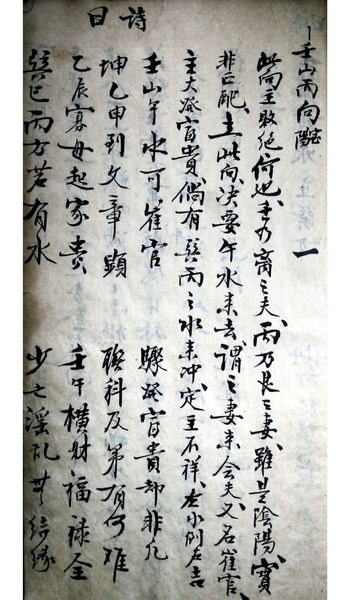 壬山丙向
一
此向主敗絕何也壬乃离之夫丙乃艮之妻雖是陰陽實
非正配立此向决要午水来去謂之妻来会夫又名崔官
主大發富貴倘有巽丙之水来冲定主不祥左小例右吉
詩曰
壬山午水可崔官 驟發富貴却非凡
坤乙申到文章顕 聨科及第有何难
乙辰寡母起家贵 壬午横財福禄全
巽巳丙方若有水 少亡淫乱